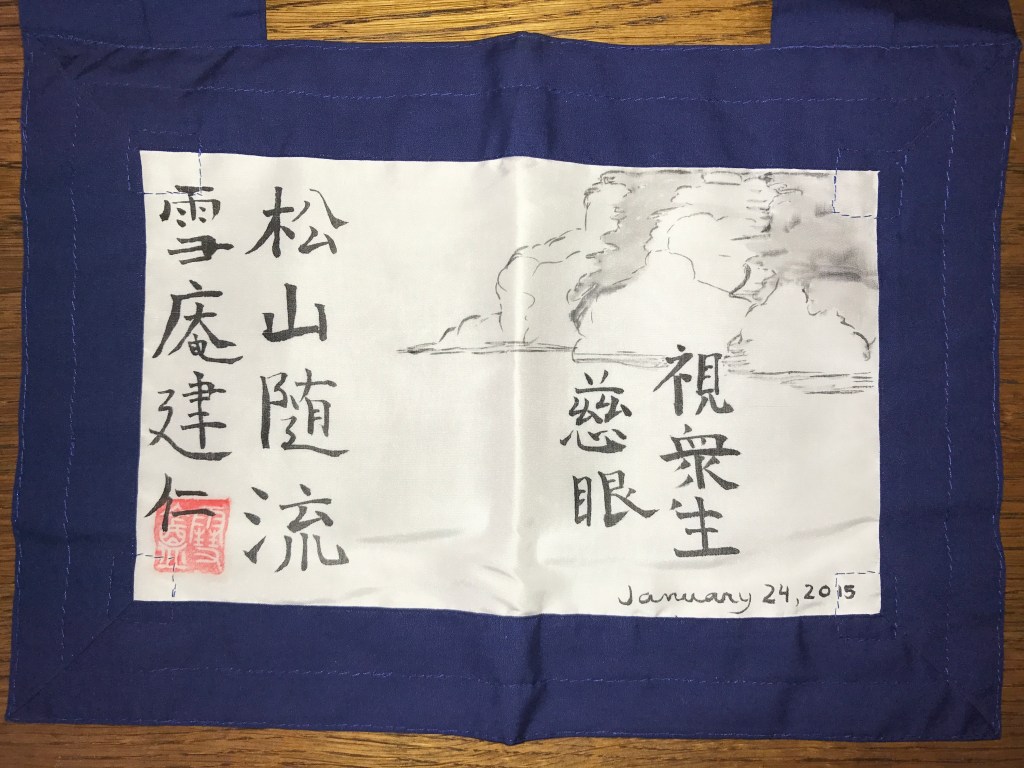 慈眼
視衆生
January 24, 2015
松山随流
雪庵建仁